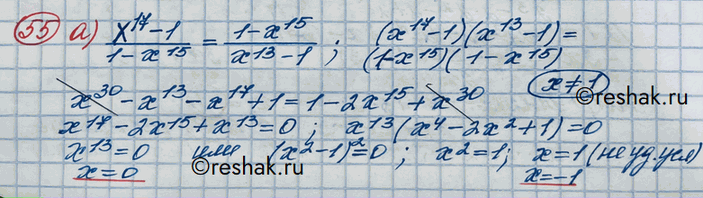 55 а) (x^17-1)/(1-x^15) = (1-x^15)/(x^13-1) ; (x^17-1)(x^13-1)=
(1-x^15)(1-x^15)
x≠1
x^30 - x^13 - x^17 + 1 = 1 - 2x^15 + x^30
x^17 - 2x^15 + x^13 = 0 ; x^13(x^4 - 2x^2 + 1) = 0
x^13 = 0 или (x^2-1)^2 = 0 ; x^2 = 1 ; x = 1 (не уд. усл)
x = 0 x = -1
©reshak.ru
©reshak.ru
©reshak.ru